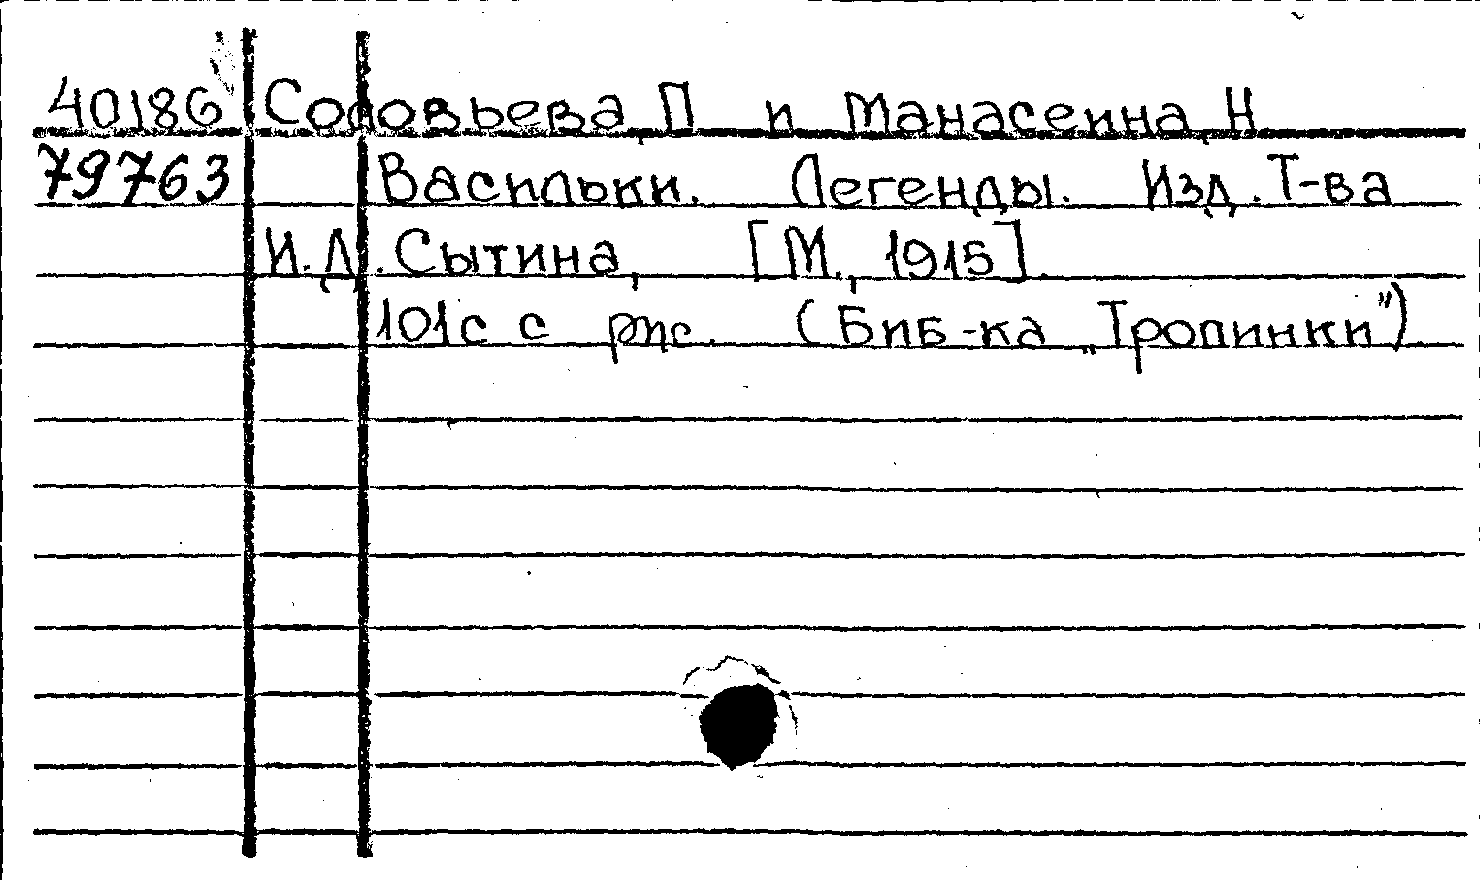 40186 Соловьева, П и Манасеина, Н
79763 Васильки. Легенды. Изд. Т-ва
И.Д. Сытина, [М., 1915].
101с с рис. (Биб-ка „Тропинки")